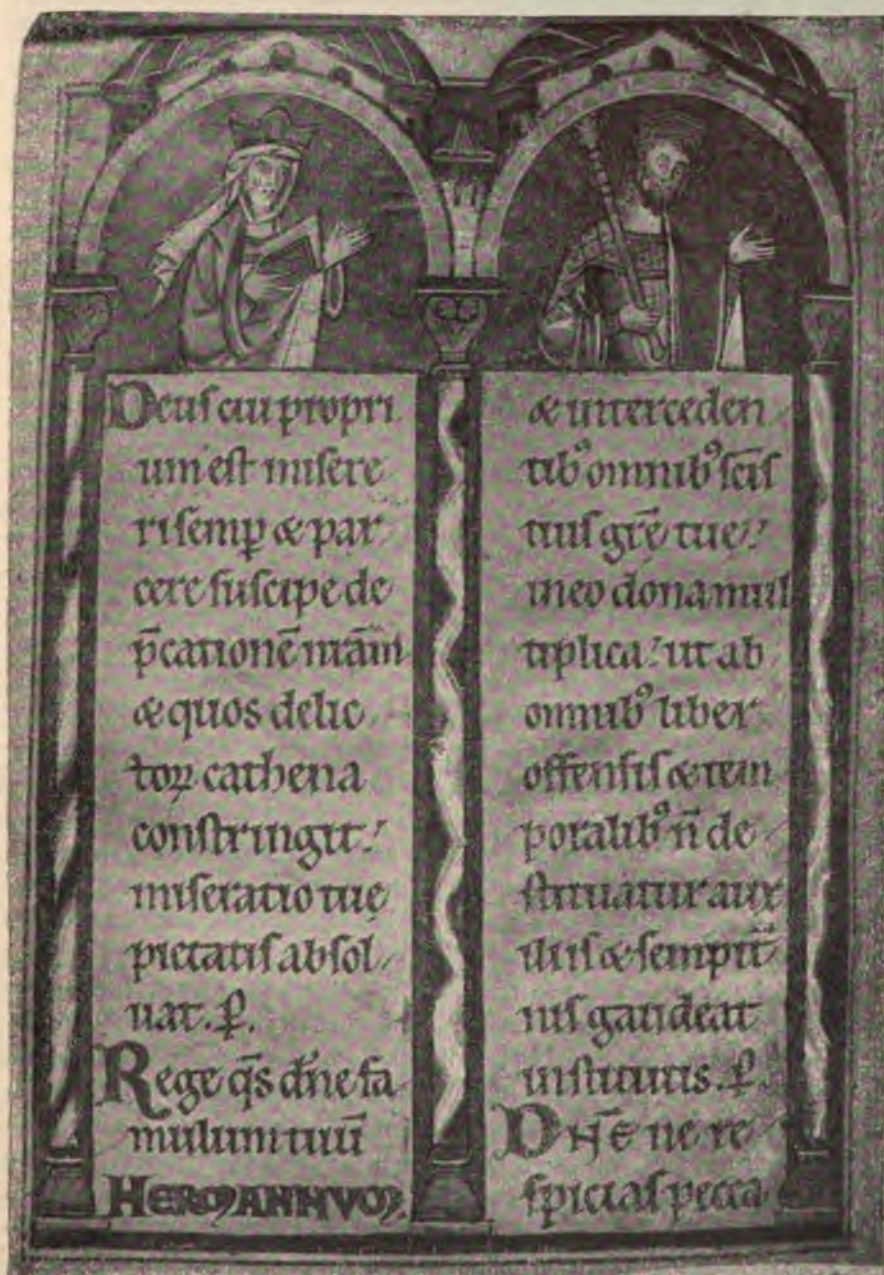 Deuſ cui propri
um eſt miſere
ri ſemꝑ & par
cere ſuſcipe de
p̄cationē nr̄am
& quos delic
toꝝ cathena
conſtringit:
miſeratio tuę
pietatiſ abſol
uat. ꝑ.
Rege q̄s dn̄e fa
mulum tuū
HERMANNVM.
& interceden
tibꝰ omnibꝰ ſcīſ
tuiſ grē tuę:
in eo dona mul
tiplica: ut ab
omnibꝰ liber
offenſiſ & tem
poralibꝰ n̄ de
ſtituatur aux
iliiſ & ſempit̄
niſ gaudeat
inſtitutis. ꝑ.
DN̄E ne re
ſpiciaſ pecca